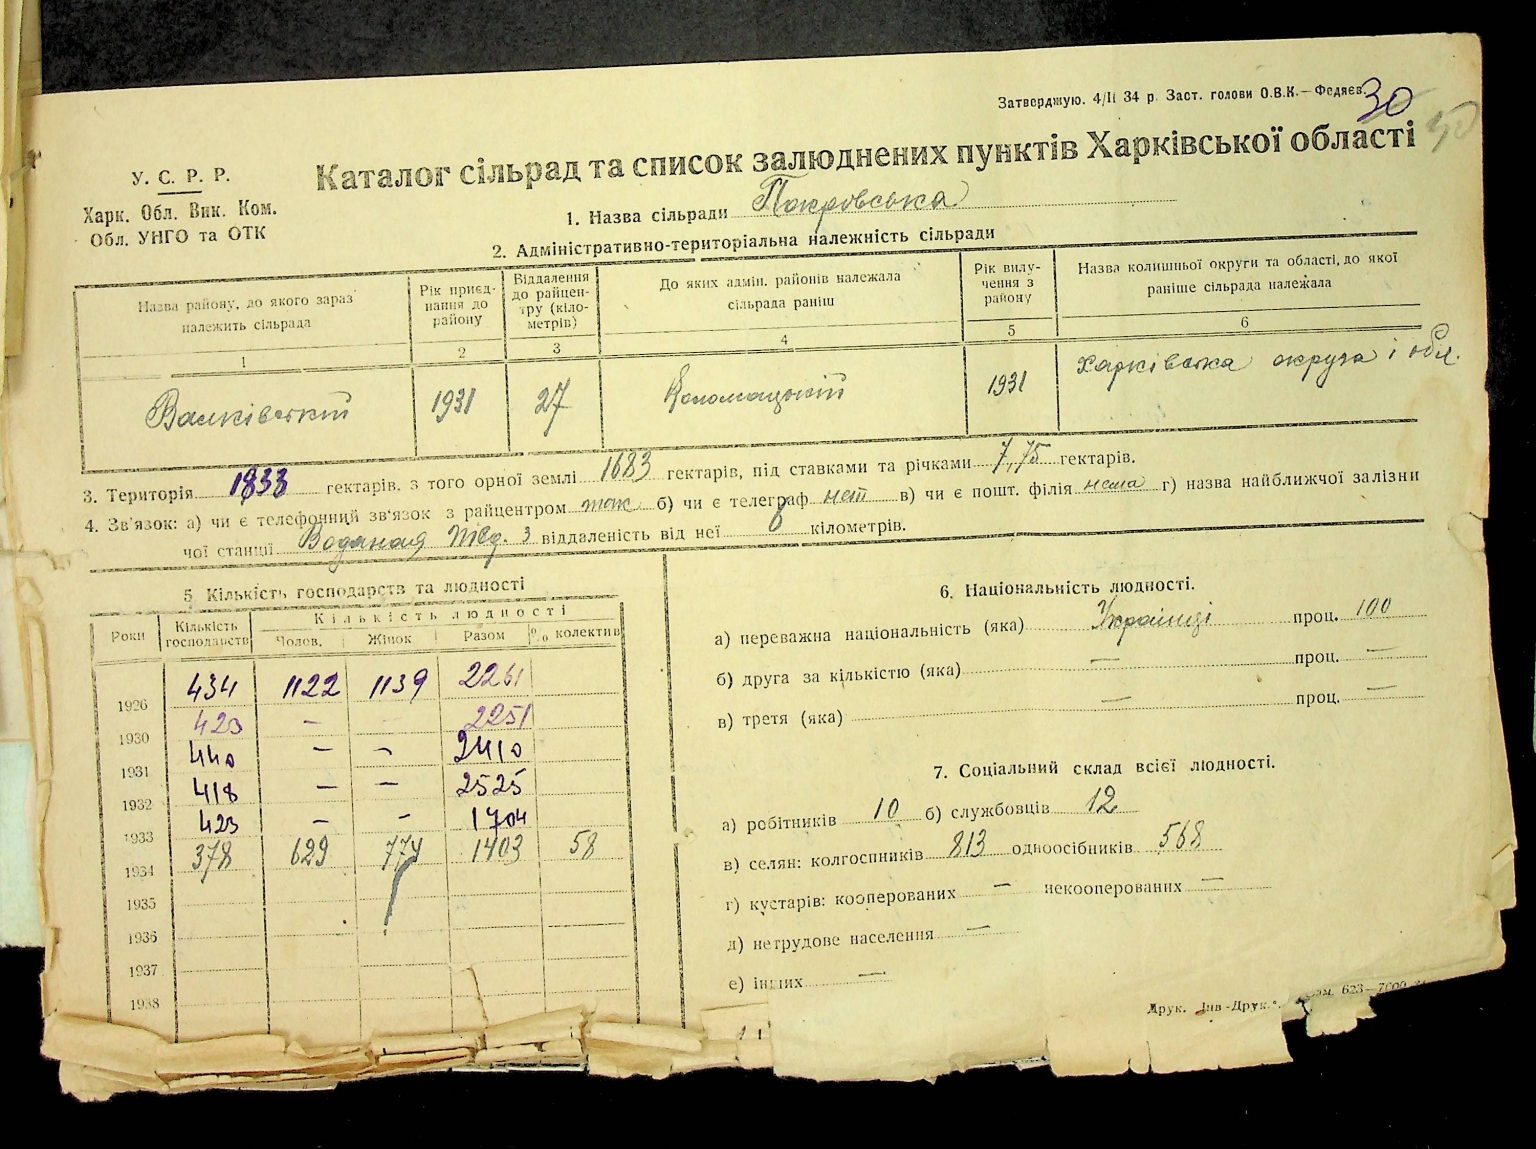 Затверджую. 4/II 34 р. Заст. голови О.В.К.—Федяєв.
30
50
У. С. Р. Р.
Харк. Обл. Вик. Ком.
Обл. УНГО та ОТК
Каталог сільрад та список залюднених пунктів Харківської області
1. Назва сільради Покровська
2. Адміністративно-територіальна належність сільради
Назва району, до якого зараз належить сільрада
Рік приєднання до району
Віддалення до райцентру (кілометрів)
До яких адмін. районів належала сільрада раніш
Рік вилучення з району
Назва колишньої округи та області, до якої раніше сільрада належала
1 2 3 4 5 6
Валківський 1931 27 Коломацький 1931 Харківська округа і обл.
3. Територія 1833 гектарів. з того орної землі 1683 гектарів, під ставками та річками 7,75 гектарів.
4. Зв'язок: а) чи є телефонний зв'язок з райцентром так б) чи є телеграф нет в) чи є пошт. філія нема г) назва найближчої залізни
чої станції Водяная Півд. з віддаленість від неї 6 кілометрів.
5. Кількість господарств та людності
Роки Кількість господарств Кількість людності
Чолов. Жінок Разом % колектив
1926 434 1122 1139 2261
1930 423 — 2251
1931 440 — — 2410
1932 418 — — 2525
1933 423 — — 1704
1934 378 629 774 1403 58
1935
1936
1937
1938
6. Національність людності.
а) переважна національність (яка) Українці проц. 100
б) друга за кількістю (яка) — проц. —
в) третя (яка) — проц. —
7. Соціальний склад всієї людності.
а) робітників 10 б) службовців 12
в) селян: колгоспників 813 одноосібників 568
г) кустарів: кооперованих — некооперованих —
д) нетрудове населення —
е) інших —
Друк. Інв-Друк. 623—7000